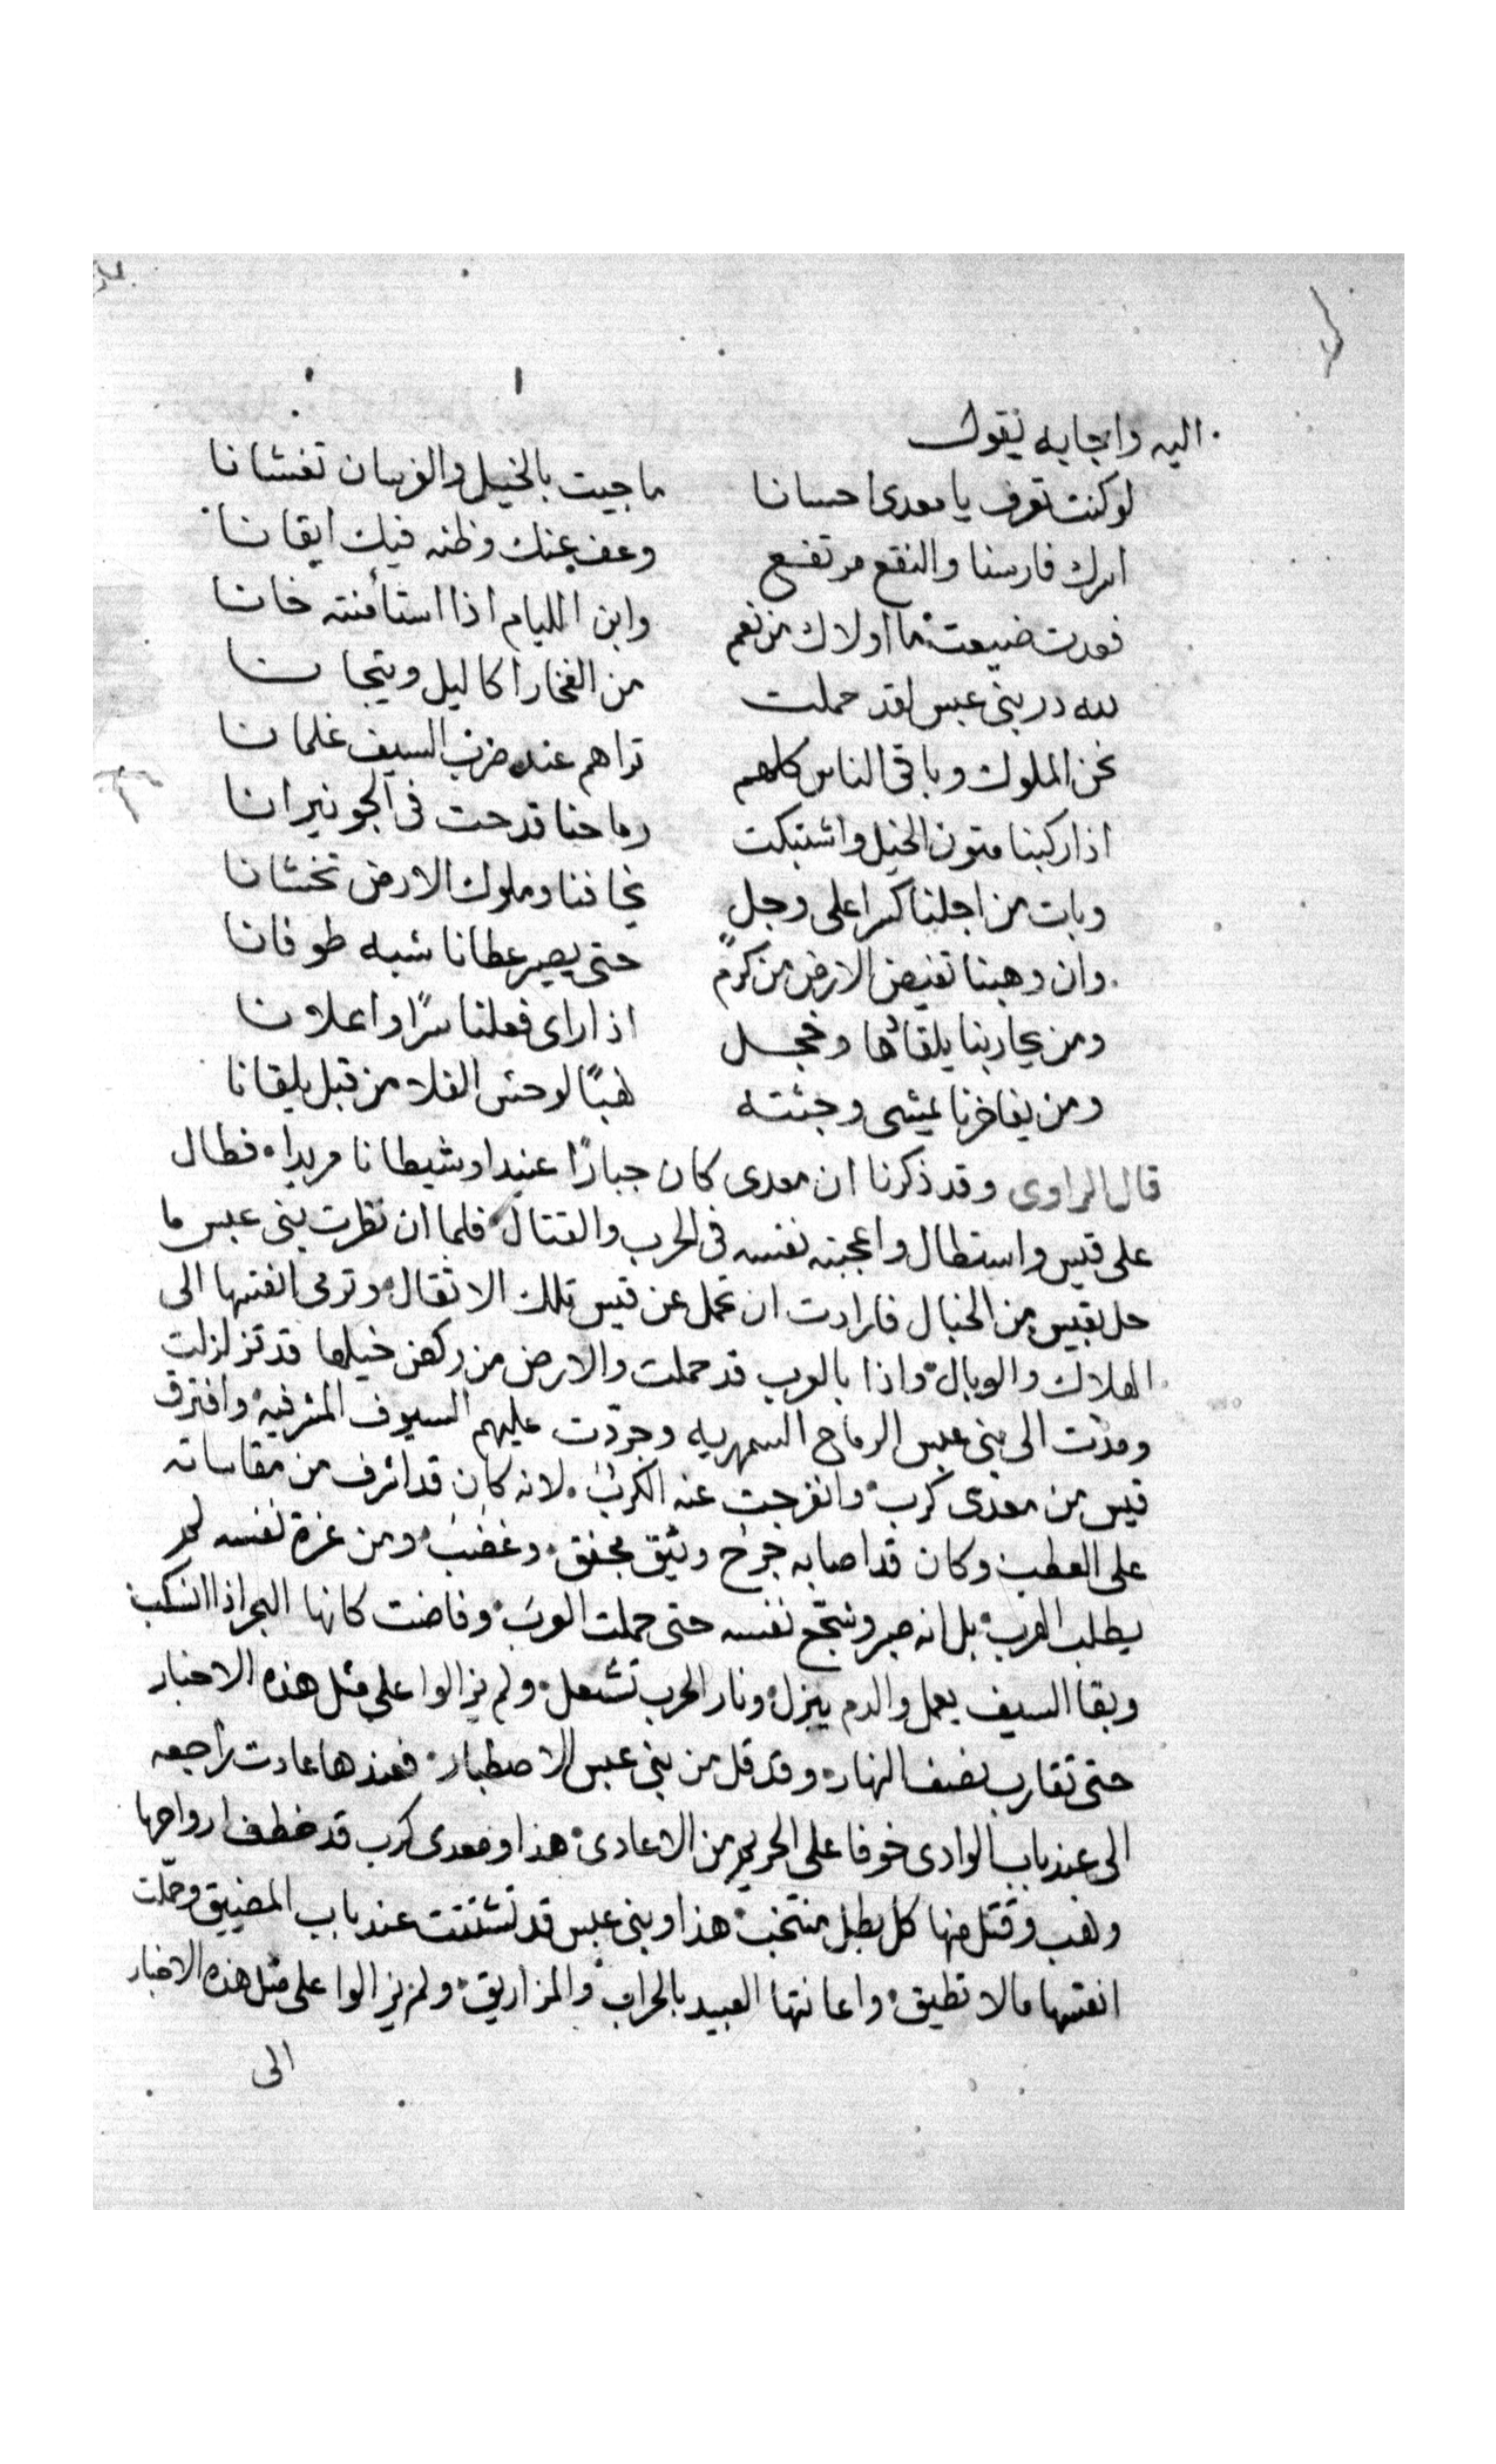 اليه واجابه يقول
لو كنت تعرف يا معدى احسانا ماجيت بالخيل والفرسان تغشانا
اسرك فارسنا والنقع مرتفع وعف عنك وظنه فيك ايقانا
فعدت ضيعت ما اولاك من نعم وابن الليام اذا استأمنته خانا
لله در بنى عبس لقد حملت من الفخار اكاليل وتيجانا
نحن الملوك وباقى الناس كلهم تراهم عند ضرب السيف غلمانا
اذا ركبنا متون الخيل واشتبكت رماحنا قدحت فى الجو نيرانا
وبات من اجلنا كسرا على وجل يخافنا وملوك الارض تخشانا
وان وهبنا تفيض الارض من كرم حتى يصير عطانا شبه طوفانا
ومن يحاربنا يلقا وخجل اذا راى فعلنا سرًا واعلانا
ومن يفاخرنا يمشى وجثته نهبًا لوحش الفلا من قبل يلقانا
قال الراوى وقد ذكرنا ان معدى كان جبارًا عنيدا وشيطانا مريدا، فطال
على قيس واستطال واعجبته نفسه فى الحرب والقتال، فلما ان نظرت بنى عبس ما
حل بقيس من الخبال فارادت ان تحمل عن قيس تلك الاثقال، وترمى انفسها الى
الهلاك والوبال، واذا بالعرب قد حملت والارض من ركض خيلها قد تزلزلت
ومدّت الى بنى عبس الرماح السمهريه وجردّت عليهم السيوف المشرفيه، وافترق
قيس من معدى كرب، وانفرجت عنه الكرب، لانه كان قد اشرف من مقاساته
على العطب وكان قد اصابه جرح وثيق بحنق، وغضب، ومن عزة نفسه لم
يطلب الهرب، بل انه صبر وشجّع نفسه حتى حملت العرب، وفاضت كانها البحر اذا انسكب
وبقا السيف يعمل والدم ينزل، ونار الحرب تشعل، ولم يزالوا على مثل هذه الاخبار
حتى تقارب نصف النهار، وقد قل من بنى عبس الاصطبار، فعندها عادت راجعه
الى عند باب الوادى خوفا على الحريم من الاعادى، هذا ومعدى كرب قد خطف ارواحها
ونهب وقتل منها كل بطل منتخب، هذا وبنى عبس قد تشتتت عند باب المضيق وحملّت
انفسها مالا تطيق، واعانتها العبيد بالحراب والمزاريق، ولم يزالوا على مثل هذه الاخبار
الى